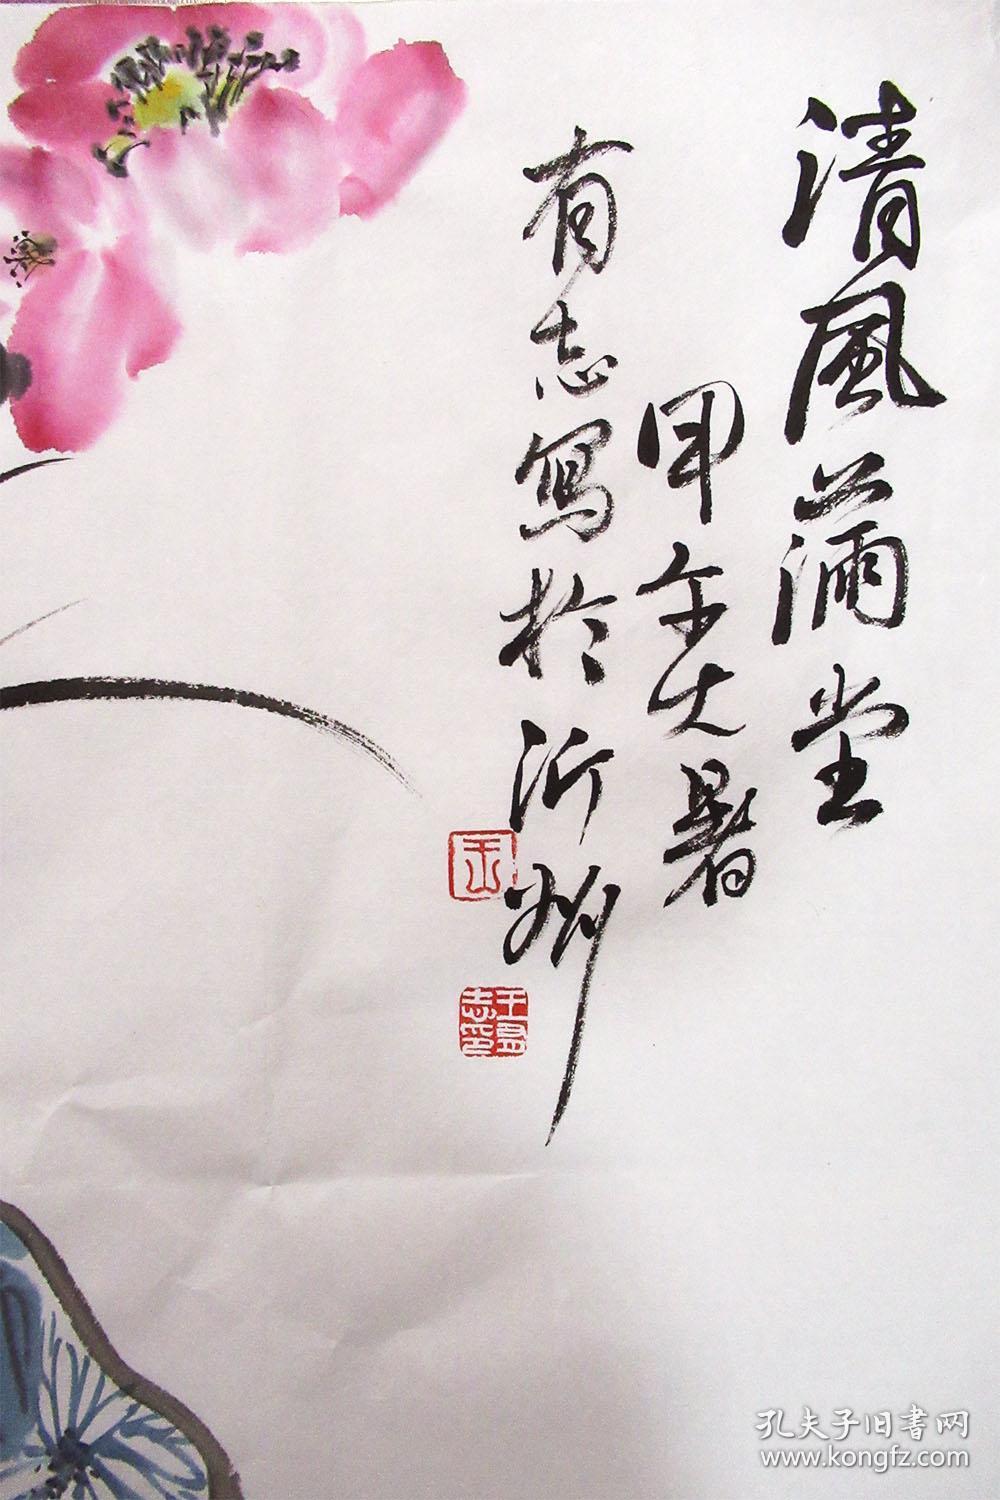 清風滿堂
甲午大暑
有志寫於沂州
王
王有志印
孔夫子旧書网
www.kongfz.com